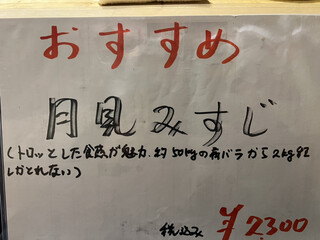 おすすめ
月見みすじ
(トロッとした食感が魅力.約50kgの肩バラから2kg程
しかとれない)
税込み
¥2300